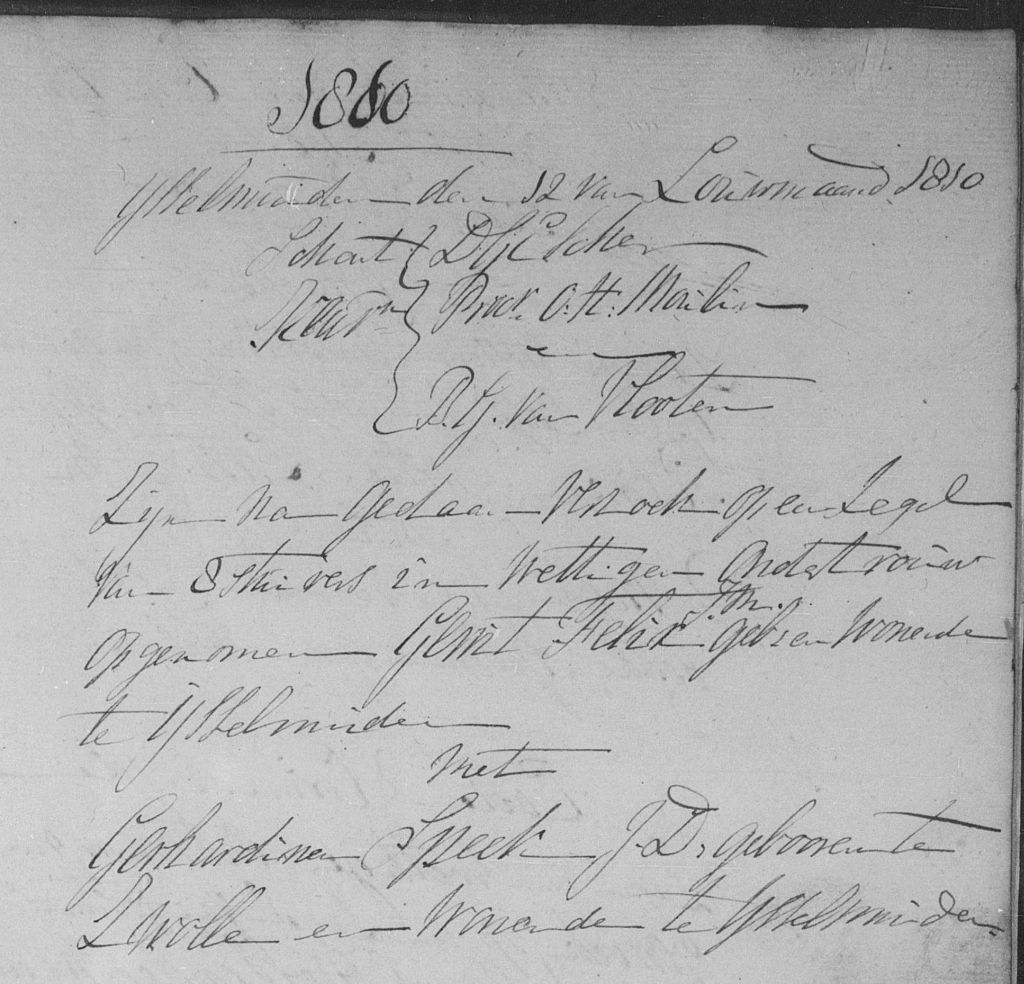 1810
IJsselmuiden den 12 van Louwmaand 1810
Schout { D
Keurn { Proc. O. H. Moulin
en
D. G. van Vlooten
Zijn na gedaan versoek op een Zegel
van 8 stuivers in wettigen ondertrouw
opgenomen Gerrit Felix J.M. geb: en Wonende
te IJsselmuiden
met
Gerhardina Speek J.D. gebooren te
Zwolle en Wonende te IJsselmuiden.